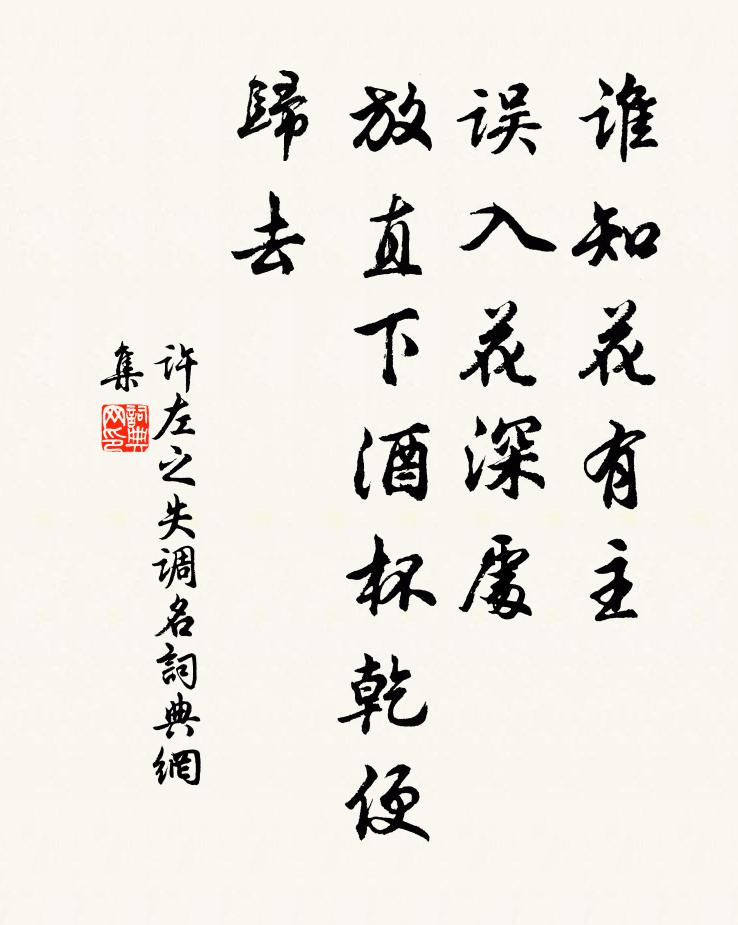 谁知花有主
误入花深處
放直下酒杯乾便
歸去
许左之失调名詞典網
集
詞典
网印